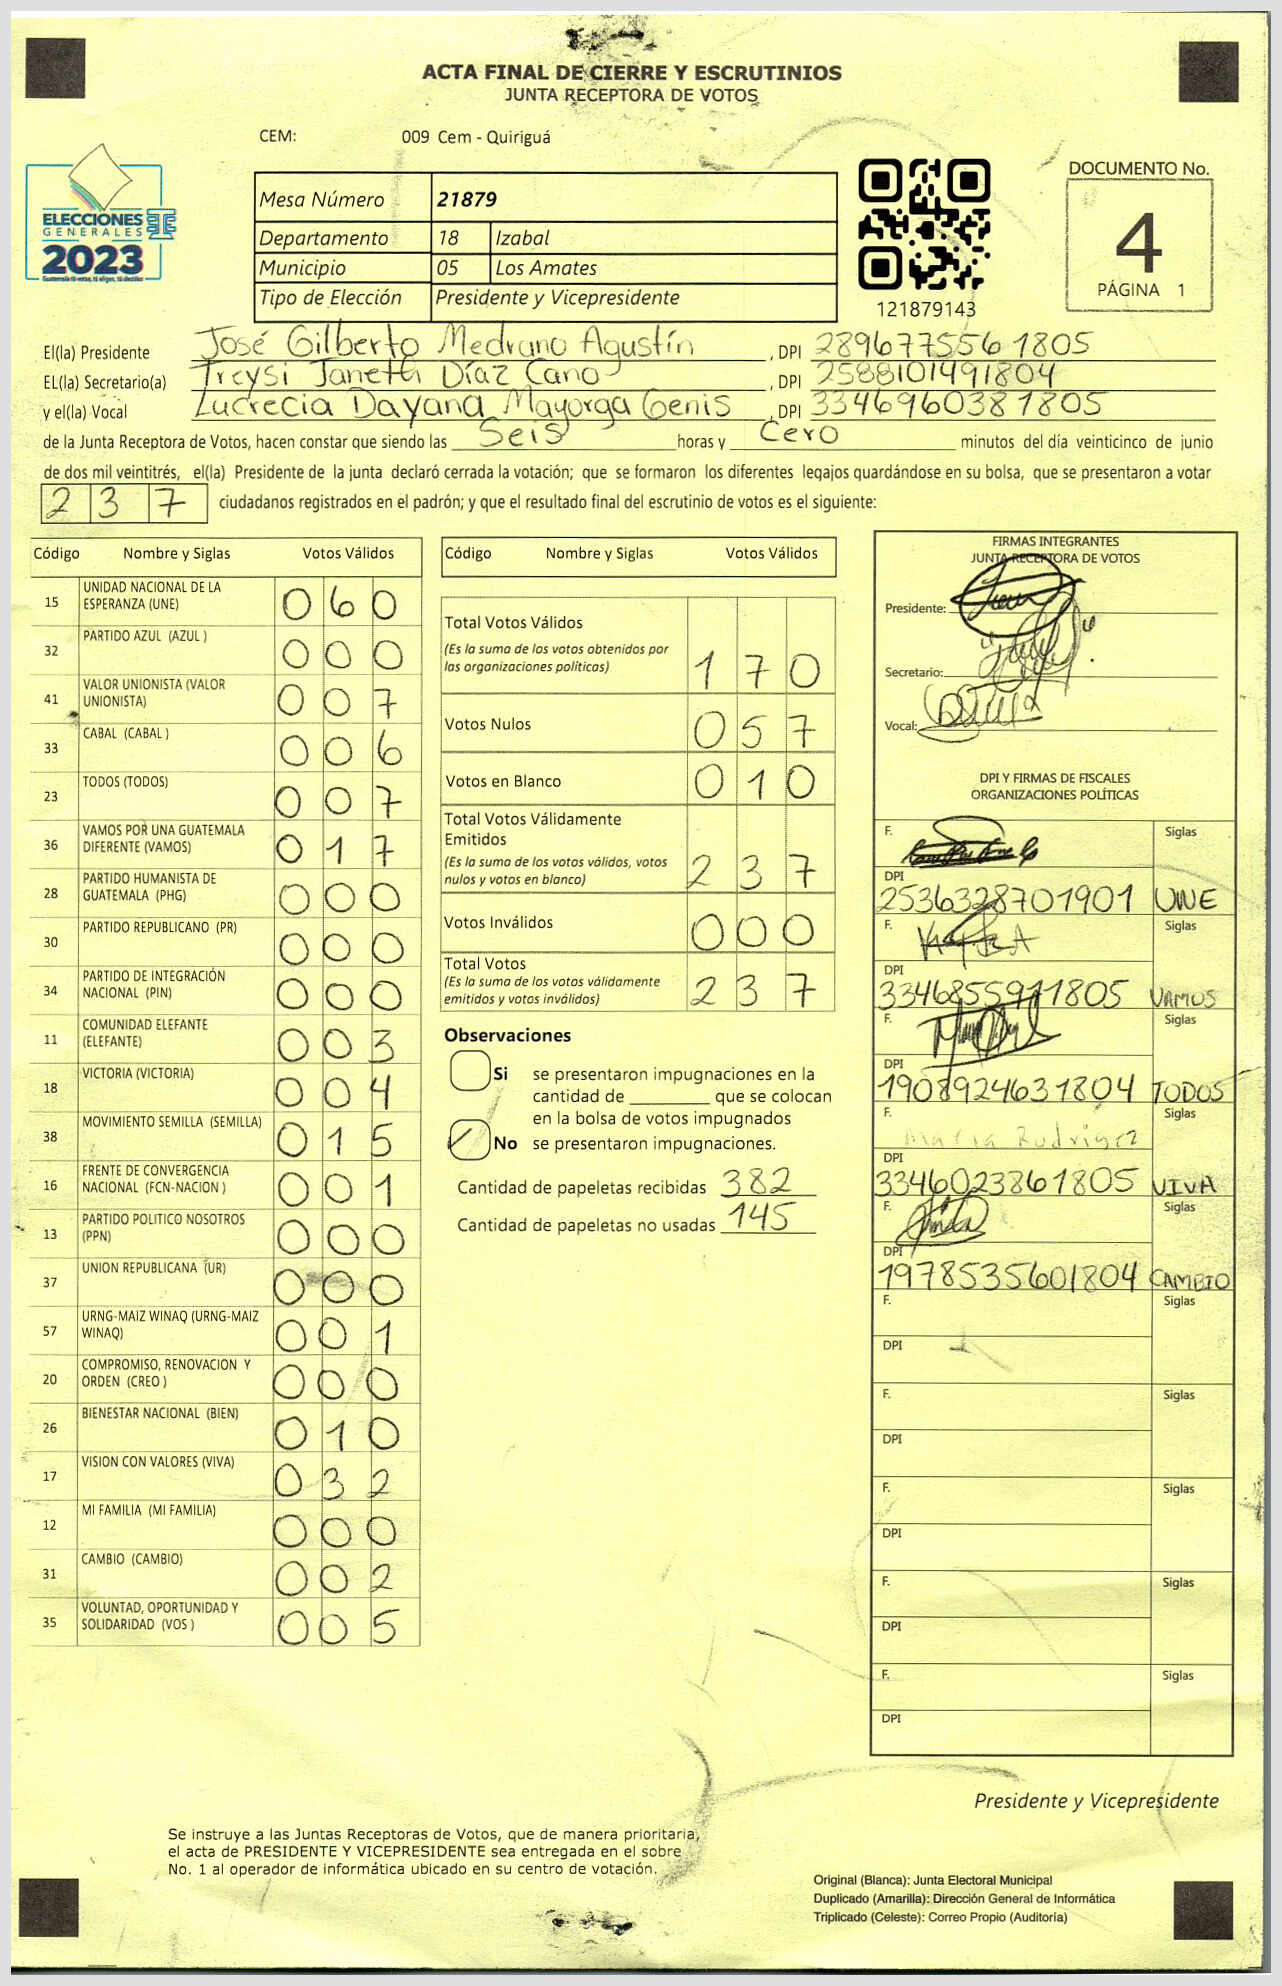 ACTA FINAL DE CIERRE Y ESCRUTINIOS
JUNTA RECEPTORA DE VOTOS
CEM: 009 Cem - Quiriguá
ELECCIONES
GENERALES
2023
Mesa Número 21879
Departamento 18 Izabal
Municipio 05 Los Amates
Tipo de Elección Presidente y Vicepresidente
121879143
DOCUMENTO No.
4
PÁGINA 1
El(la) Presidente José Gilberto Medrano Agustín , DPI 2896775561805
EL(la) Secretario(a) Treysi Janeth Díaz Cano , DPI 2588101491804
y el(la) Vocal Lucrecia Dayana Mayorga Genis , DPI 3346960381805
de la Junta Receptora de Votos, hacen constar que siendo las Seis horas y Cero minutos del día veinticinco de junio
de dos mil veintitrés, el(la) Presidente de la junta declaró cerrada la votación; que se formaron los diferentes legajos guardándose en su bolsa, que se presentaron a votar
237 ciudadanos registrados en el padrón; y que el resultado final del escrutinio de votos es el siguiente:
Código Nombre y Siglas Votos Válidos
15 UNIDAD NACIONAL DE LA ESPERANZA (UNE) 060
32 PARTIDO AZUL (AZUL ) 000
41 VALOR UNIONISTA (VALOR UNIONISTA) 007
33 CABAL (CABAL ) 006
23 TODOS (TODOS) 007
36 VAMOS POR UNA GUATEMALA DIFERENTE (VAMOS) 017
28 PARTIDO HUMANISTA DE GUATEMALA (PHG) 000
30 PARTIDO REPUBLICANO (PR) 000
34 PARTIDO DE INTEGRACIÓN NACIONAL (PIN) 000
11 COMUNIDAD ELEFANTE (ELEFANTE) 003
18 VICTORIA (VICTORIA) 004
38 MOVIMIENTO SEMILLA (SEMILLA) 015
16 FRENTE DE CONVERGENCIA NACIONAL (FCN-NACION ) 001
13 PARTIDO POLITICO NOSOTROS (PPN) 000
37 UNION REPUBLICANA (UR) 000
57 URNG-MAIZ WINAQ (URNG-MAIZ WINAQ) 001
20 COMPROMISO, RENOVACION Y ORDEN (CREO ) 000
26 BIENESTAR NACIONAL (BIEN) 010
17 VISION CON VALORES (VIVA) 032
12 MI FAMILIA (MI FAMILIA) 000
31 CAMBIO (CAMBIO) 002
35 VOLUNTAD, OPORTUNIDAD Y SOLIDARIDAD (VOS ) 005
Código Nombre y Siglas Votos Válidos
Total Votos Válidos
(Es la suma de los votos obtenidos por
las organizaciones políticas) 170
Votos Nulos 057
Votos en Blanco 010
Total Votos Válidamente
Emitidos
(Es la suma de los votos válidos, votos
nulos y votos en blanco) 237
Votos Inválidos 000
Total Votos
(Es la suma de los votos válidamente
emitidos y votos inválidos) 237
Observaciones
Si se presentaron impugnaciones en la
cantidad de ________ que se colocan
en la bolsa de votos impugnados
No se presentaron impugnaciones.
Cantidad de papeletas recibidas 382
Cantidad de papeletas no usadas 145
FIRMAS INTEGRANTES
JUNTA RECEPTORA DE VOTOS
Presidente:
Secretario:
Vocal:
DPI Y FIRMAS DE FISCALES
ORGANIZACIONES POLÍTICAS
F. Siglas
DPI
2536328701901 UNE
F. Siglas
DPI
3346855911805 VAMOS
F. Siglas
DPI
1908924631804 TODOS
F. Siglas
Maria Rodriguez
DPI
3346023861805 VIVA
F. Siglas
DPI
1978535601804 CAMBIO
F. Siglas
DPI
F. Siglas
DPI
F. Siglas
DPI
F. Siglas
DPI
F. Siglas
DPI
Presidente y Vicepresidente
Se instruye a las Juntas Receptoras de Votos, que de manera prioritaria,
el acta de PRESIDENTE Y VICEPRESIDENTE sea entregada en el sobre
No. 1 al operador de informática ubicado en su centro de votación.
Original (Blanca): Junta Electoral Municipal
Duplicado (Amarilla): Dirección General de Informática
Triplicado (Celeste): Correo Propio (Auditoría)